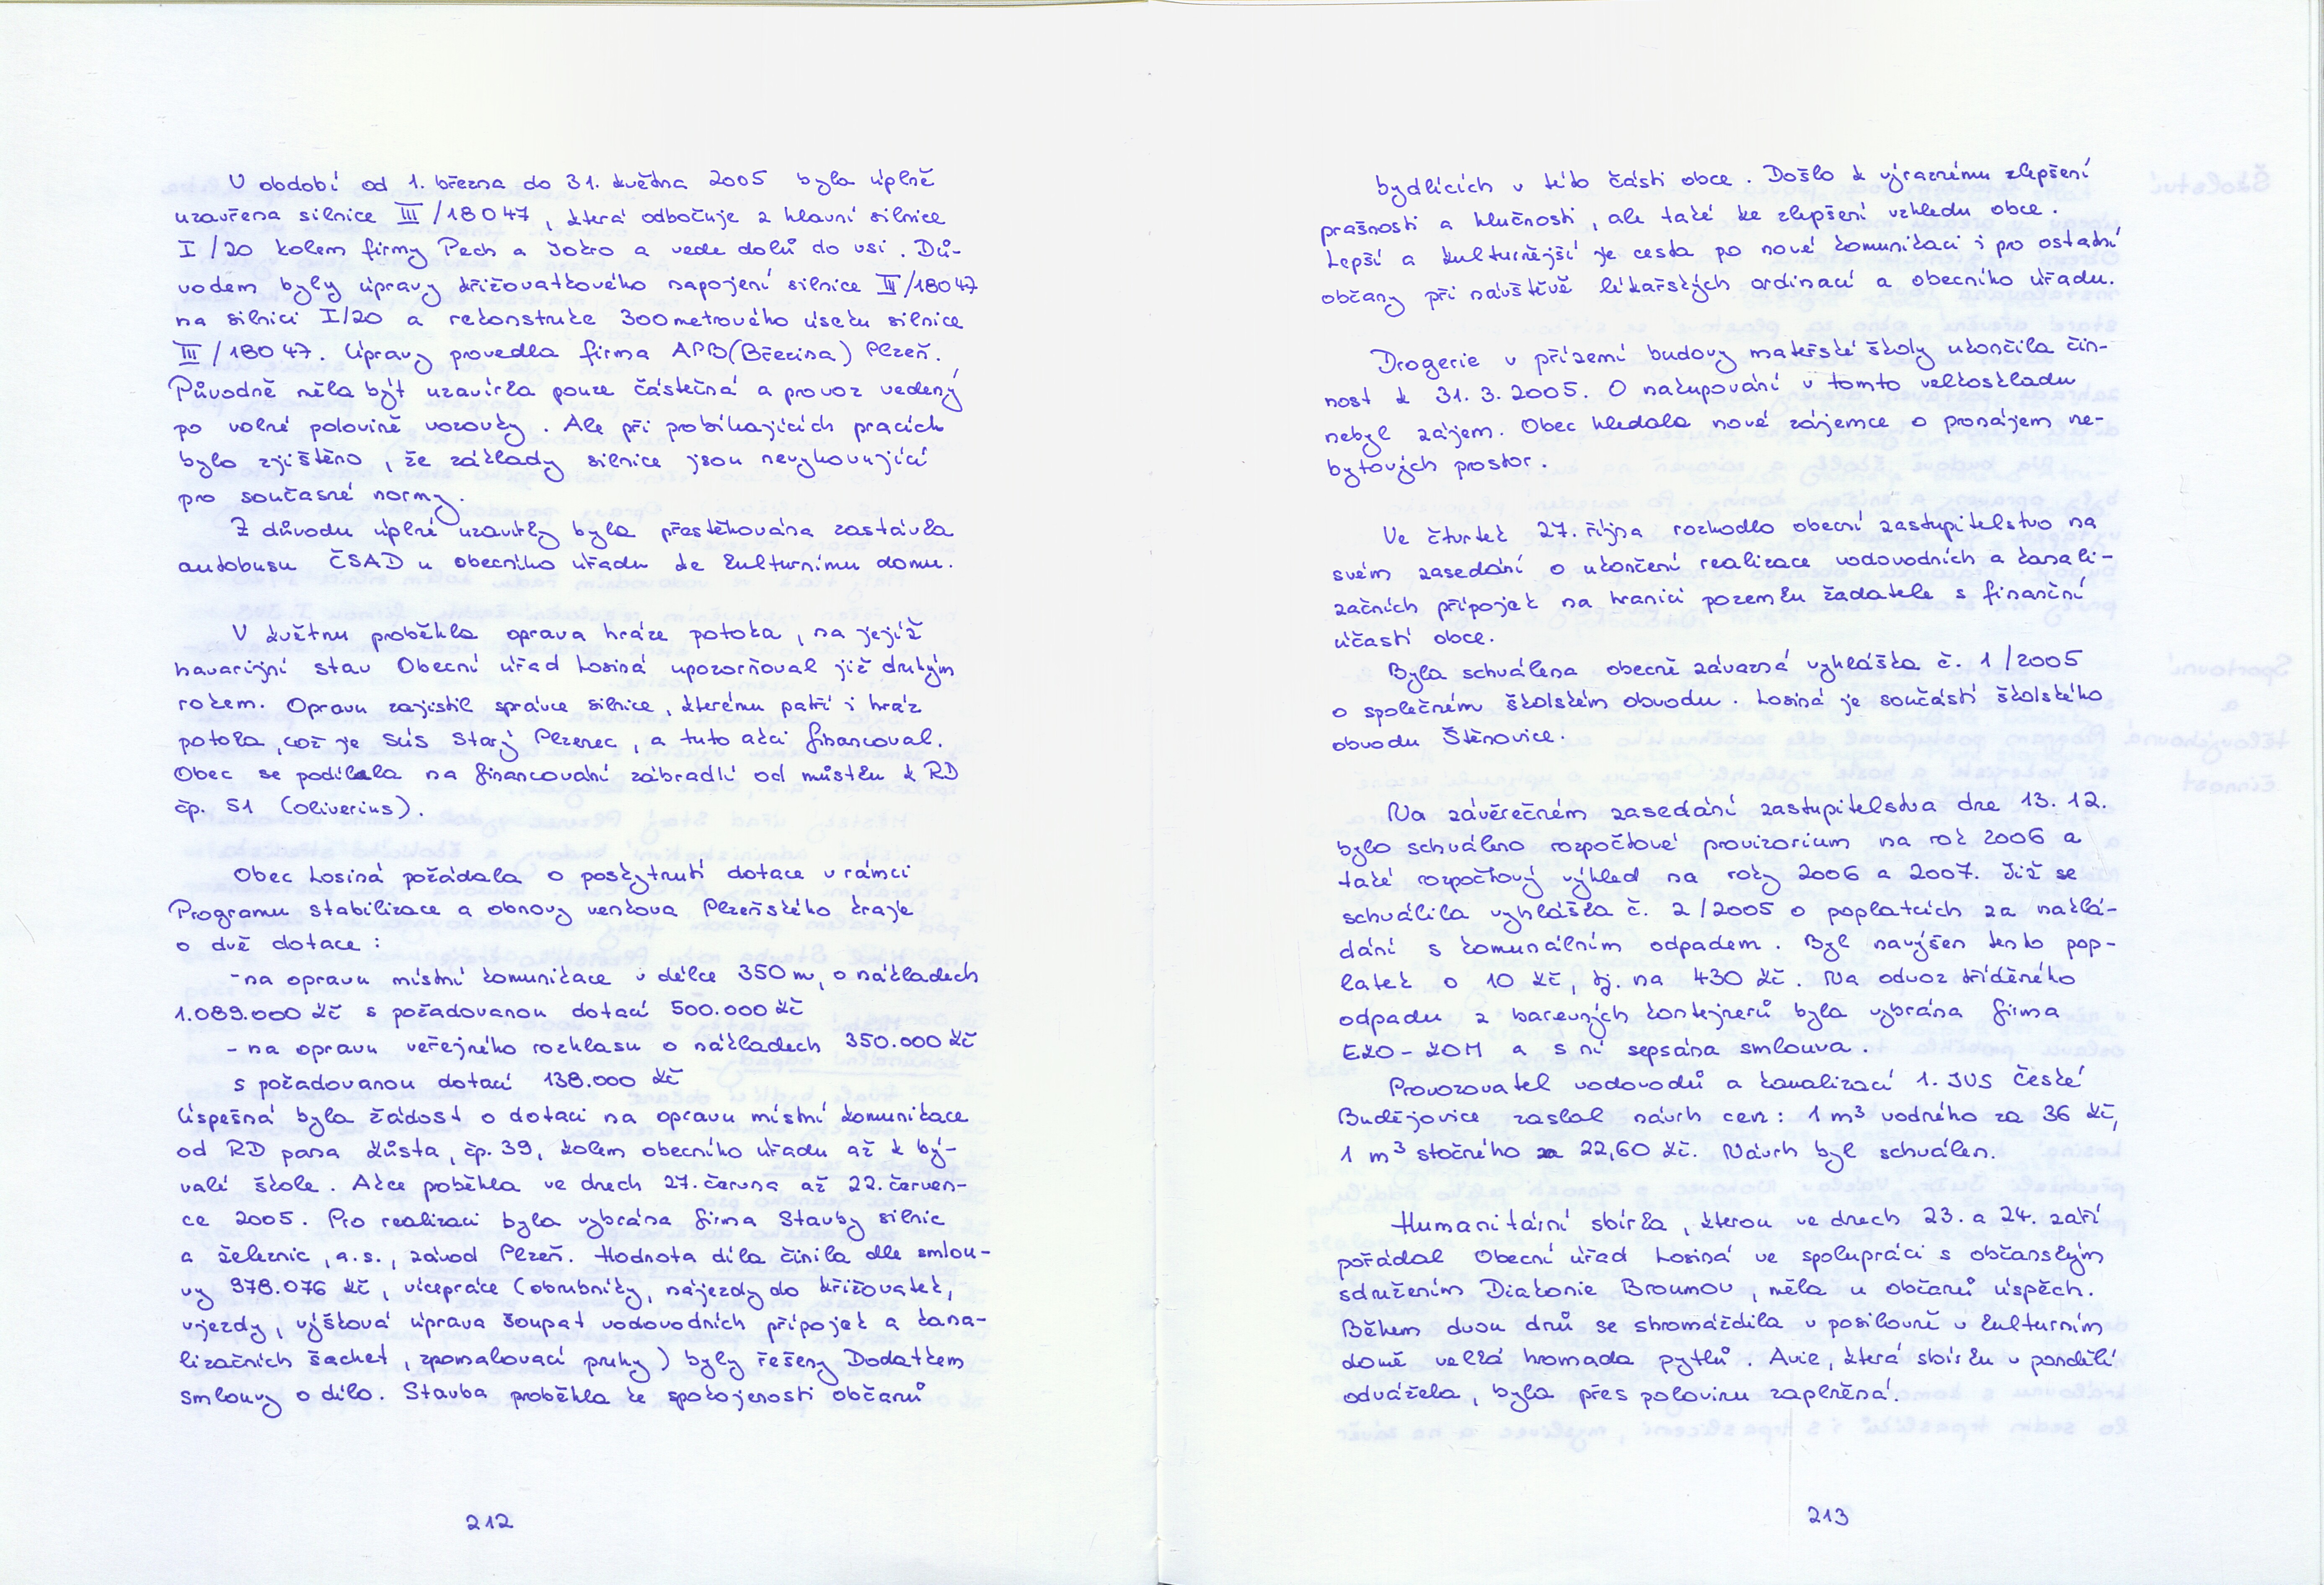 V období od 1. března do 31. května 2005 byla úplně
uzavřena silnice III/18047, která odbočuje z hlavní silnice
I/20 kolem firmy Pech a Jokro a vede dolů do vsi. Dů-
vodem byly úpravy křižovatkového napojení silnice III/18047
na silnici I/20 a rekonstrukce 300metrového úseku silnice
III/18047. Úpravy provedla firma APB(Březina) Plzeň.
Původně měla být uzavírka pouze částečná a provoz vedený
po volné polovině vozovky. Ale při probíhajících pracích
bylo zjištěno, že základy silnice jsou nevyhovující
pro současné normy.
Z důvodu úplné uzavírky byla přestěhována zastávka
autobusu ČSAD u obecního úřadu ke kulturnímu domu.
V květnu proběhla oprava hráze potoka, na jejíž
havarijní stav Obecní úřad Losiná upozorňoval již druhým
rokem. Opravu zajistil správce silnice, kterému patří i hráz
potoka, což je SÚS Starý Plzenec, a tuto akci financoval.
Obec se podílela na financování zábradlí od můstku k RD
čp. 51 (Oliverius).
Obec Losiná požádala o poskytnutí dotace v rámci
Programu stabilizace a obnovy venkova Plzeňského kraje
o dvě dotace:
-na opravu místní komunikace v délce 350 m, o nákladech
1.089.000 Kč s požadovanou dotací 500.000 Kč
- na opravu veřejného rozhlasu o nákladech 350.000 Kč
s požadovanou dotací 138.000 Kč
Úspešná byla žádost o dotaci na opravu místní komunikace
od RD pana Kůsta, čp. 39, kolem obecního úřadu až k bý-
valé škole. Akce poběhla ve dnech 27. června až 22. červen-
ce 2005. Pro realizaci byla vybrána firma Stavby silnic
a železnic, a.s., závod Plzeň. Hodnota díla činila dle smlou-
vy 978.076 Kč, vícepráce (obrubníky, nájezdy do křižovatek,
vjezdy, výšková úprava šoupat vodovodních přípojek a kana-
lizačních šachet, zpomalovací pruhy) byly řešeny Dodatkem
smlouvy o dílo. Stavba proběhla ke spokojenosti občanů
212
bydlících v této části obce. Došlo k výraznému zlepšení
prašnosti a hlučnosti, ale také ke zlepšení vzhledu obce.
Lepší a kulturnější je cesta po nové komunikaci i pro ostatní
občany při návštěvě lékařských ordinací a obecního úřadu.
Drogerie v přízemí budovy mateřské školy ukončila čin-
nost k 31. 3. 2005. O nakupování v tomto velkoskladu
nebyl zájem. Obec hledala nové zájemce o pronájem ne-
bytových prostor.
Ve čtvrtek 27. října rozhodlo obecní zastupitelstvo na
svém zasedání o ukončení realizace vodovodních a kanali-
začních přípojek na hranici pozemku žadatele s finanční
účastí obce.
Byla schválena obecně závazná vyhláška č. 1/2005
o společném školském obvodu. Losiná je součástí školského
obvodu Štěnovice.
Na závěrečném zasedání zastupitelstva dne 13. 12.
bylo schváleno rozpočtové provizorium na rok 2006 a
také rozpočtový výhled na roky 2006 a 2007. Též se
schválila vyhláška č. 2/2005 o poplatcích za naklá-
dání s komunálním odpadem. Byl navýšen tento pop-
latek o 10 Kč, tj. na 430 Kč. Na odvoz tříděného
odpadu z barevných kontejnerů byla vybrána firma
EKO-KOM a s ní sepsána smlouva.
Provozovatel vodovodů a kanalizací 1. JVS České
Budějovice zaslal návrh cen: 1 m³ vodného za 36 Kč,
1 m³ stočného za 22,60 Kč. Návrh byl schválen.
Humanitární sbírka, kterou ve dnech 23. a 24. září
pořádal Obecní úřad Losiná ve spolupráci s občanským
sdružením Diakonie Broumov, měla u občanů úspěch.
Během dvou dnů se shromáždila v posilovně v kulturním
domě velká hromada pytlů. Avie, která sbírku v pondělí
odvážela, byla přes polovinu zaplněná.
213